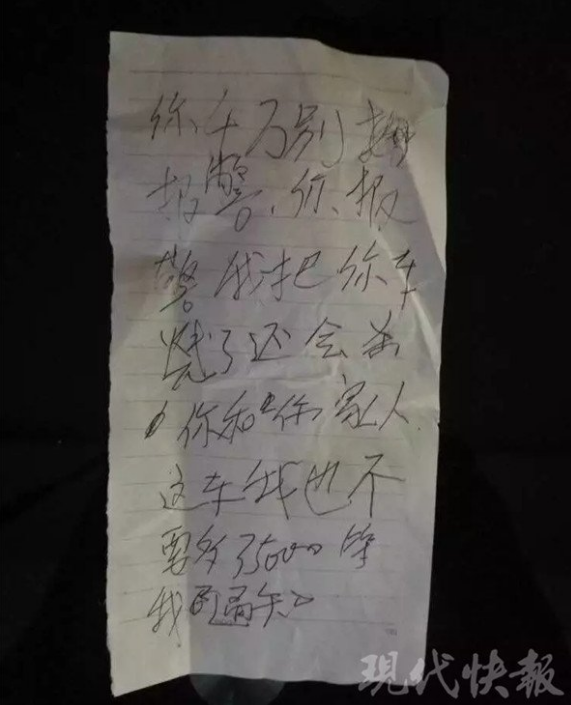 你千万别
报警、你报
警我把你车
烧了还会杀
你和你家人
这车我也不
要多了5000等
我的通知
现代快报